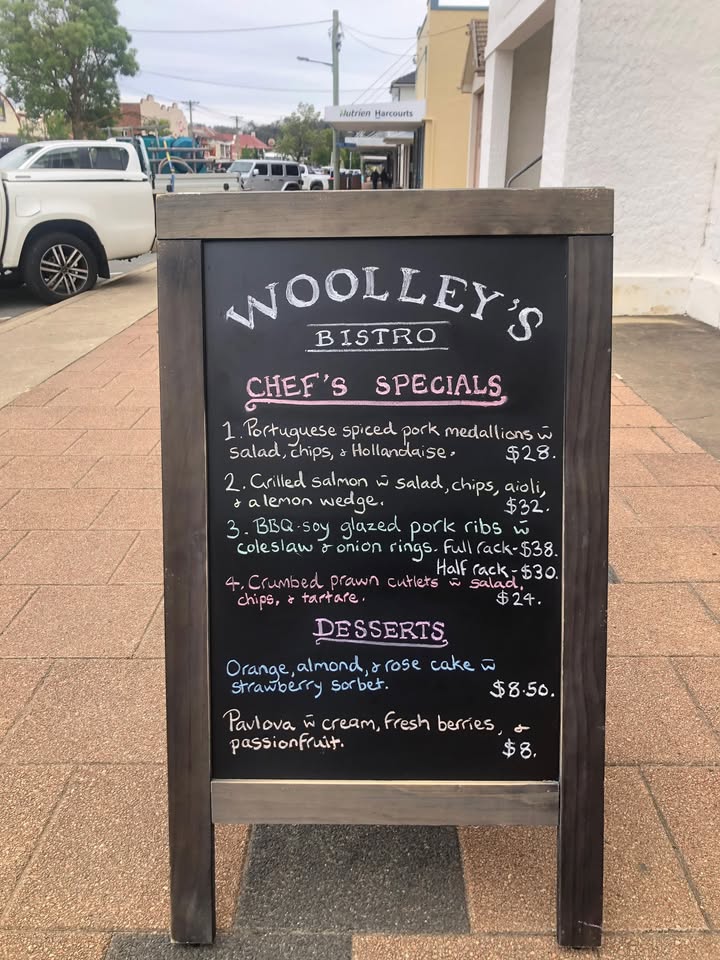 Nutrien Harcourts
WOOLLEY'S
BISTRO
CHEF'S SPECIALS
1. Portuguese spiced pork medallions w̄
salad, chips, & Hollandaise. $28.
2. Grilled salmon w̄ salad, chips, aioli,
& a lemon wedge. $32.
3. BBQ-soy glazed pork ribs w̄
coleslaw & onion rings. Full rack-$38.
Half rack-$30.
4. Crumbed prawn cutlets w̄ salad,
chips, & tartare. $24.
DESSERTS
Orange, almond, & rose cake w̄
strawberry sorbet. $8.50.
Pavlova w̄ cream, fresh berries, &
passionfruit. $8.